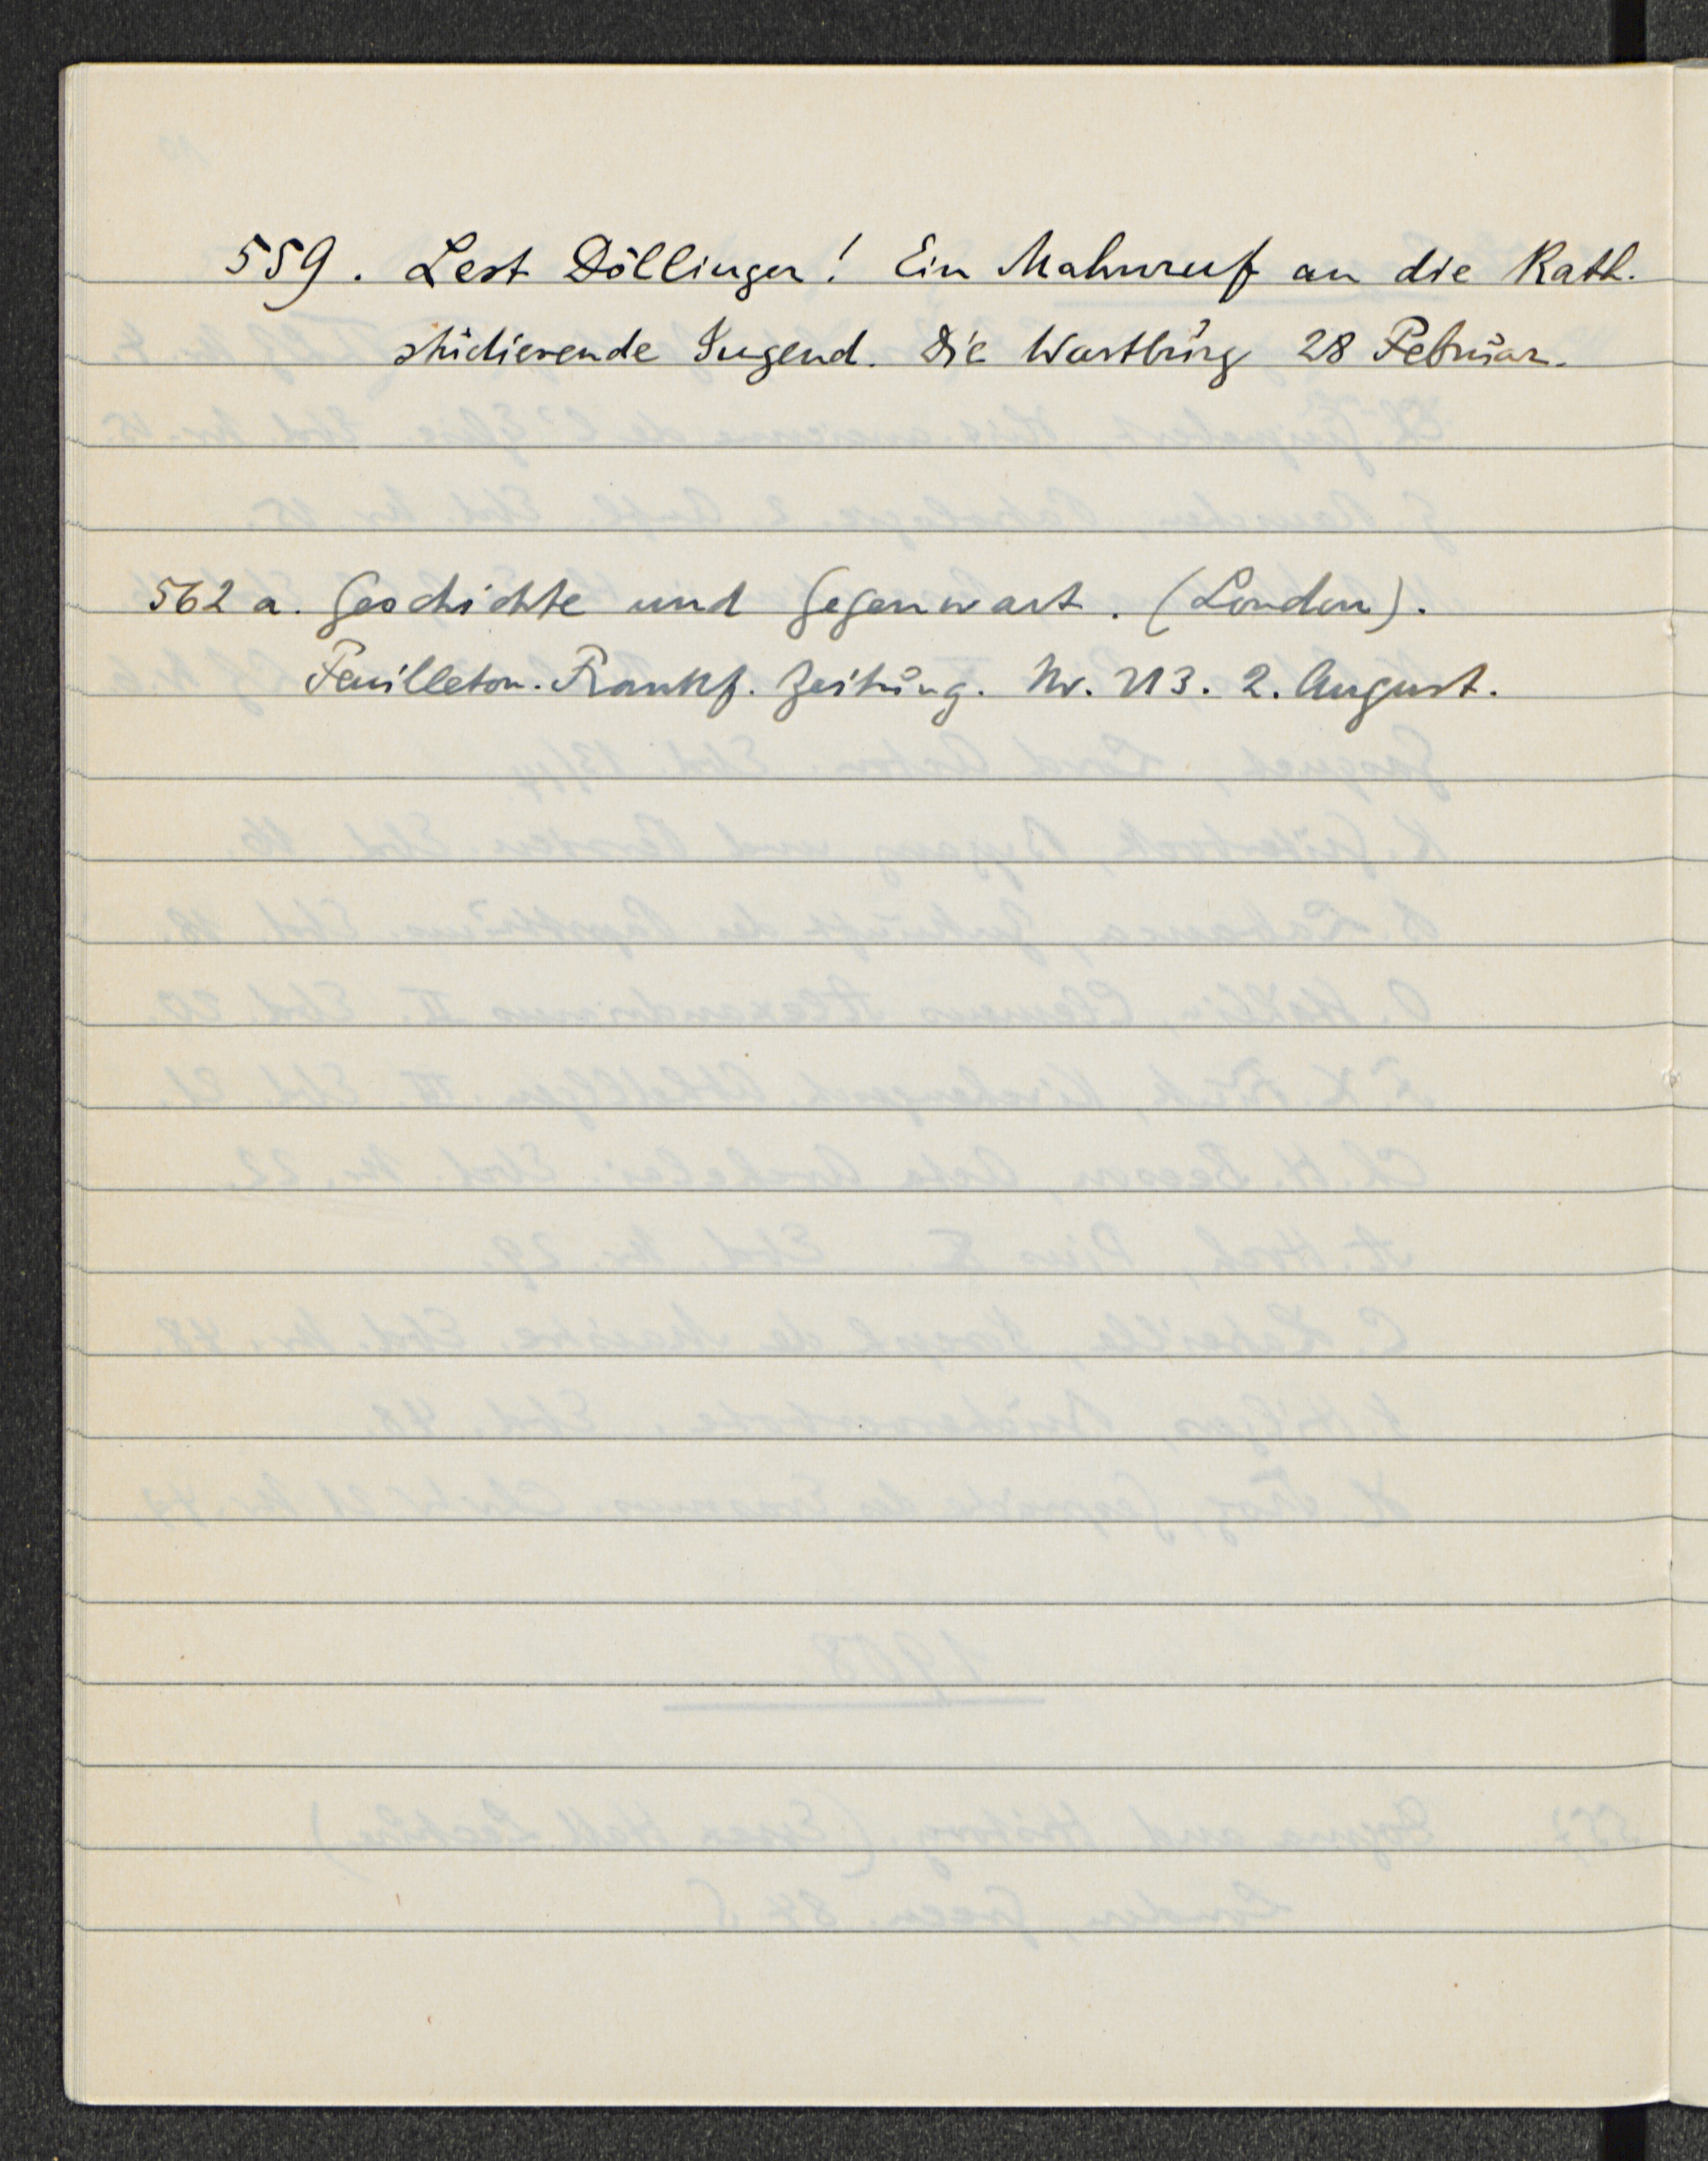 559. Lest Döllinger! Ein Mahnruf an die Kath.
studierende Jugend. Die Wartburg 28 Februar.
562 a. Geschichte und Gegenwart. (London).
Feuilleton. Frankf. Zeitung. Nr. 213. 2. August.